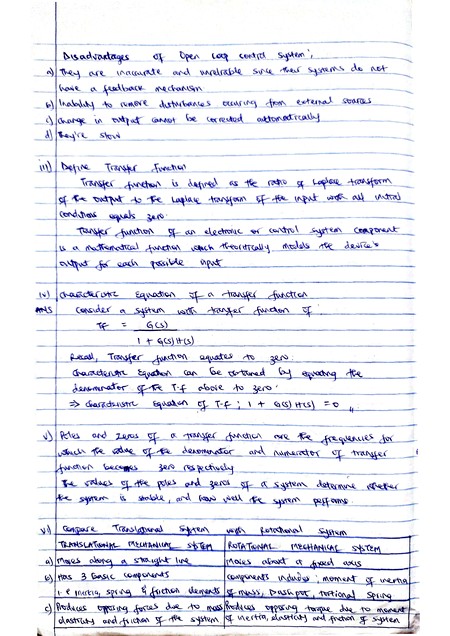 Disadvantages of Open Loop control system;
a) They are inaccurate and unreliable since their systems do not
have a feedback mechanism
b) Inability to remove disturbances occuring from external sources
c) change in output cannot be corrected automatically
d) they're slow
iii) Define Transfer function
Transfer function is defined as the ratio of Laplace transform
of the output to the Laplace transform of the input with all initial
conditions equals zero.
Transfer function of an electronic or control system component
is a mathematical function which theoretically models the device's
output for each possible input
iv) Characteristic Equation of a transfer function
ANS Consider a system with transfer function of:
TF = G(s)
1 + G(s)H(s)
Recall, Transfer function equates to zero.
Characteristic Equation can be obtained by equating the
denominator of the T.F above to zero.
⇒ Characteristic Equation of T.F; 1 + G(s)H(s) = 0 "
v) Poles and zeros of a transfer function are the frequencies for
which the value of the denominator and numerator of transfer
function becomes zero respectively
The values of the poles and zeros of a system determine whether
the system is stable, and how well the system performs.
vi) Compare Translational System with Rotational System
TRANSLATIONAL MECHANICAL SYSTEM ROTATIONAL MECHANICAL SYSTEM
a) Moves along a straight line Moves about a fixed axis
b) Has 3 basic components components includes; moment of inertia
i.e inertia, spring & friction elements of mass, Dashpot, torsional spring
c) Produces opposing forces due to mass Produces opposing torque due to moment
elasticity and friction of the system of inertia, elasticity and friction of system